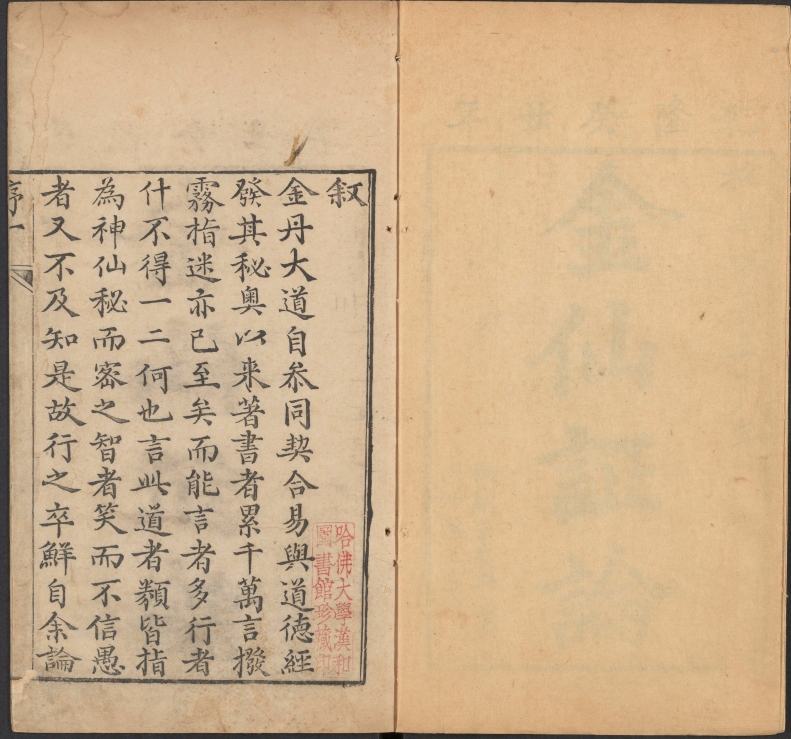 叙
金丹大道自叅同契合易與道德經
發其秘奥以来著書者累千萬言撥
霧指迷亦已至矣而能言者多行者
什不得一二何也言此道者類皆指
為神仙秘而宻之智者笑而不信愚
者又不及知是故行之卒鮮自余論
序一
哈佛大學漢和
圖書館珍藏印
金仙證論